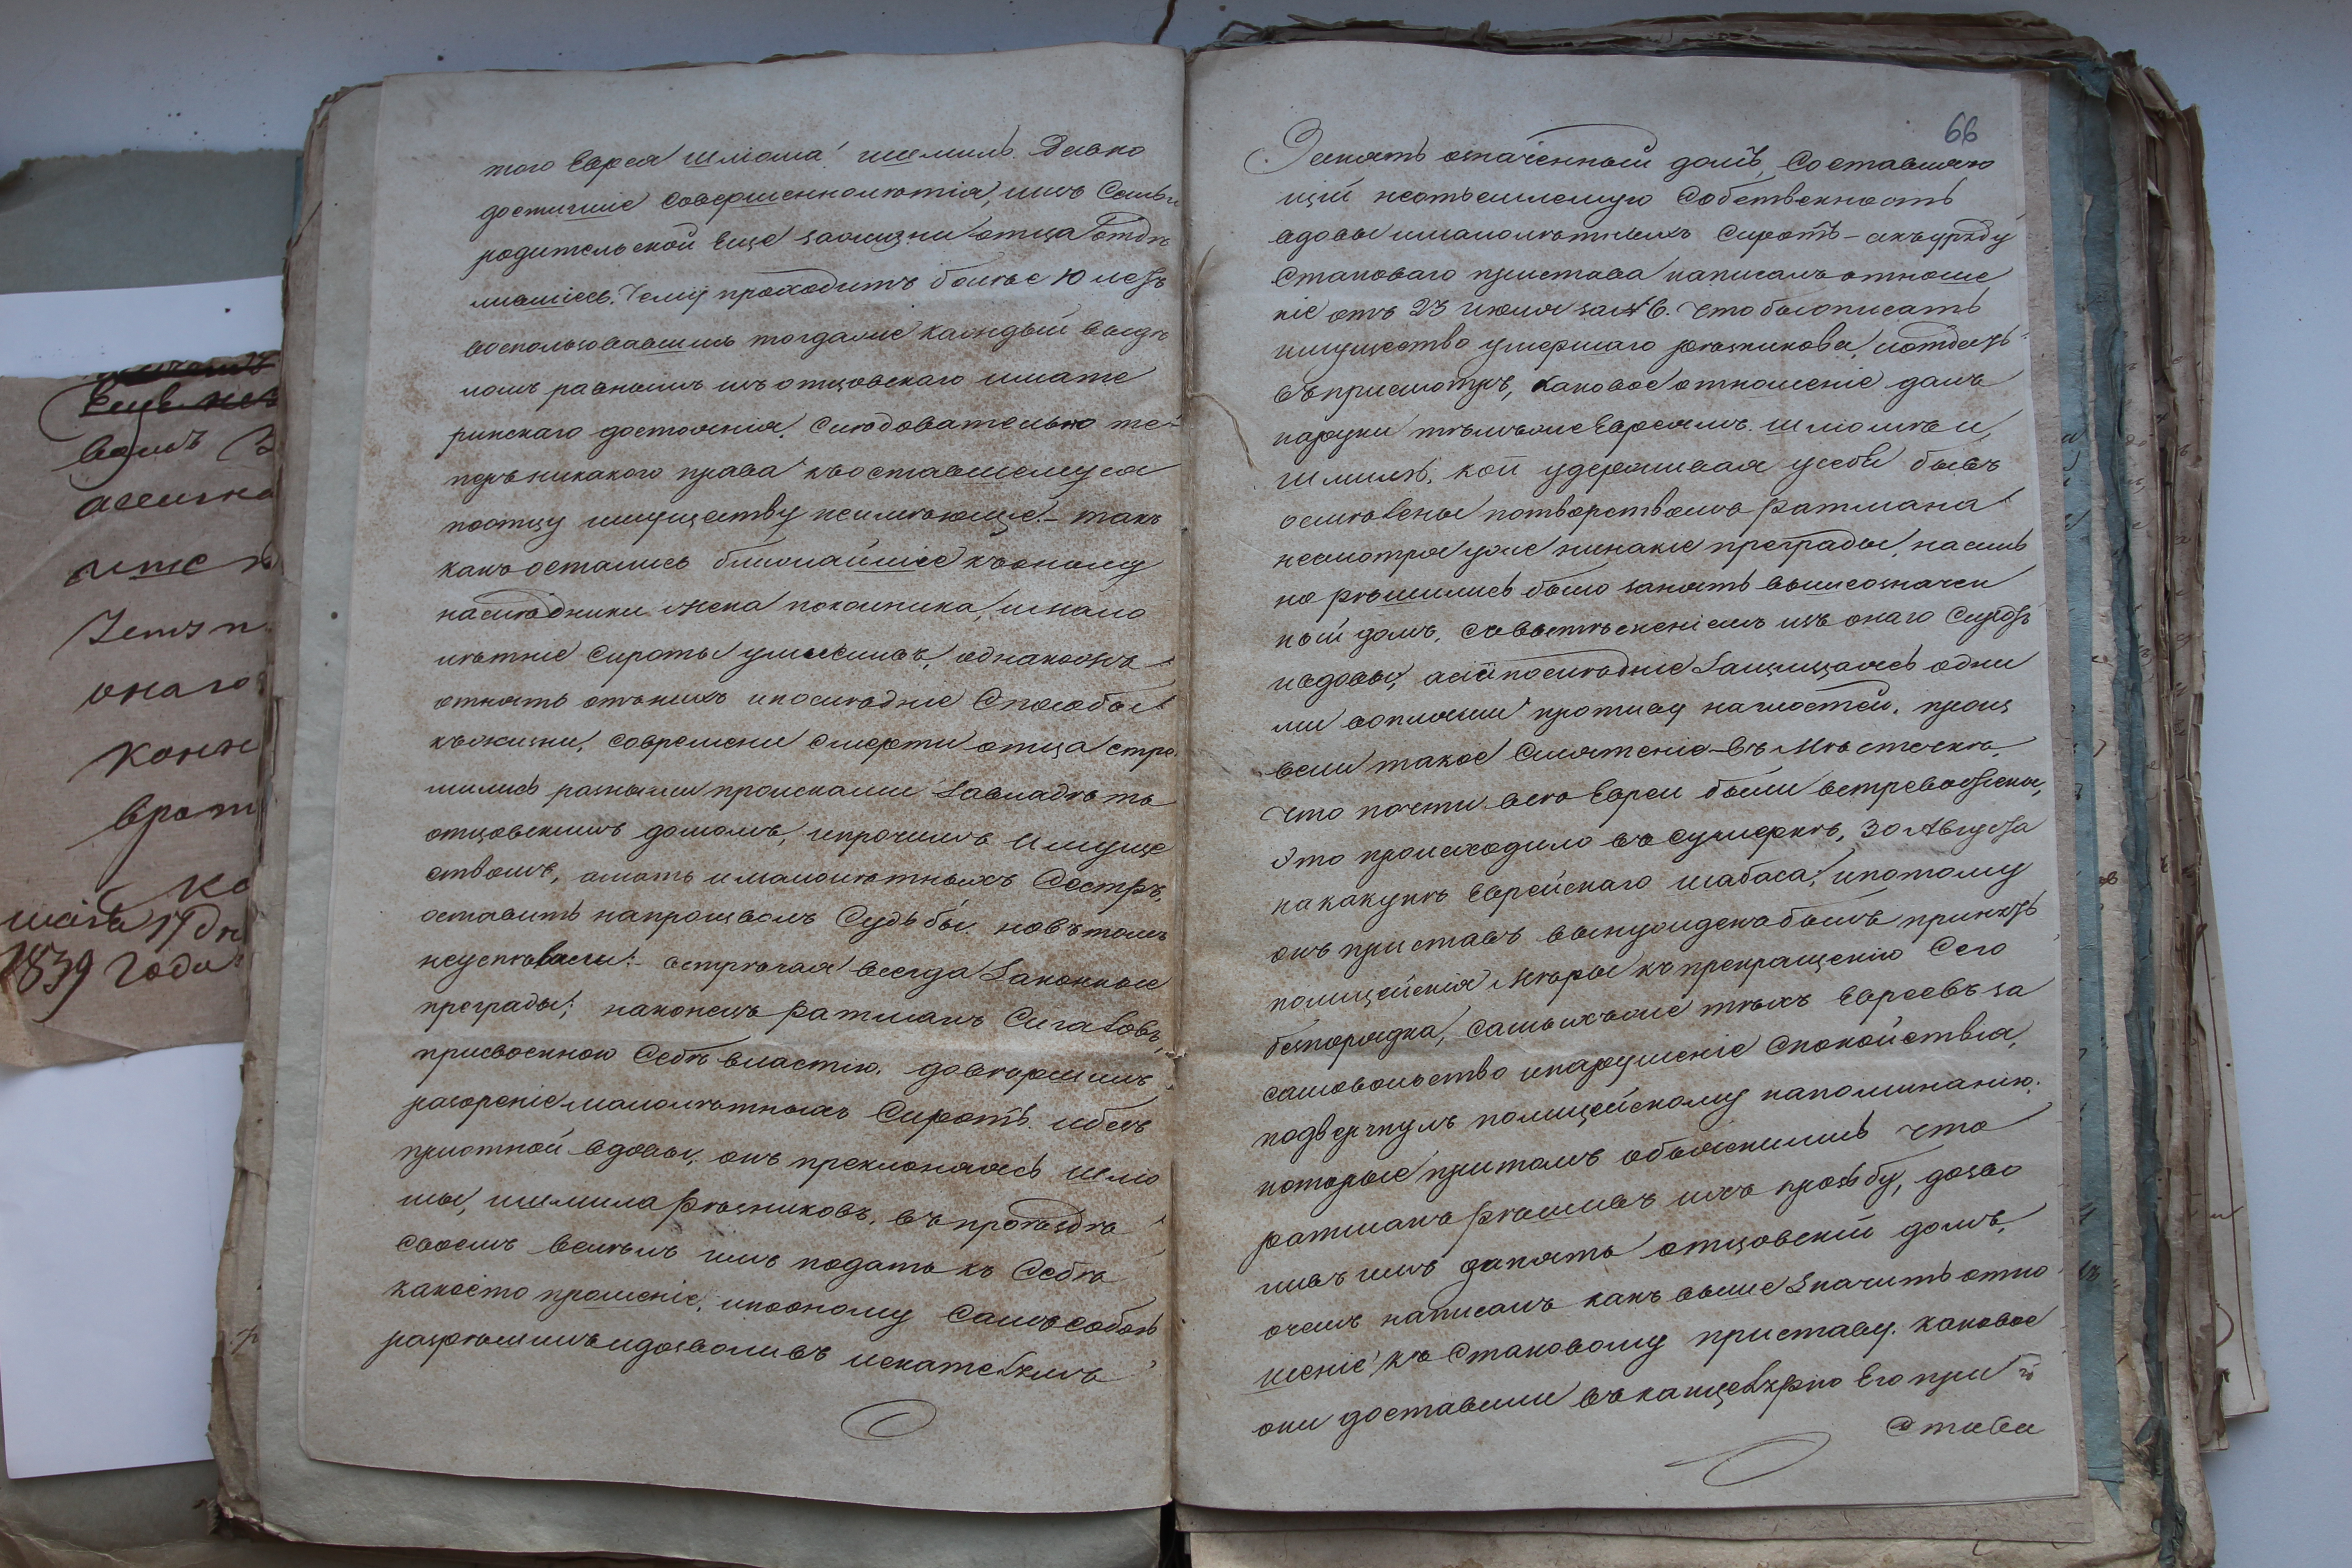 того Еврея Шліома! шмиль. Давно
достигшіе совершеннолѣтія, изъ семьи
родительской еще зажизни отца отдѣ
лившіесь. Чему проходитъ болѣе 10 летъ
воспользовавшись тогдаже каждый выдѣ
ломъ равнымъ изъ отцовскаго имате
ринскаго достоянія. Слѣдовательно те-
перь никакого права къоставшемуся
поотцу имуществу неимѣюще - такъ
какъ остались ближайшіе къоному
наслѣдники жена покойника, имало
лѣтніе сироты
отнять отънихъ ипослѣдніе способы
къжизни, современи смерти отца стре
мились разными происками завладѣть
отцовскимъ домомъ, ипрочимъ имуще
ствомъ, амать ималолѣтныхъ сестръ,
оставить напроизволъ судьбы. новътомъ
неуспѣвали: встрѣчая всегда законные
преграды; наконецъ ратманъ Сигаловъ,
присвоенною себѣ властію. довершилъ
разореніе малолѣтныхъ сиротъ ибез
пріютной вдовы, онъ преклоняясь Шліо
мы, ишмила Рѣзниковъ, въпроѣздѣ
своемъ велѣлъ имъ подать къ себѣ
какоето прошеніе, ипооному самъ собою
разрѣшилъ идозволивъ искателямъ
66
Занять означенный домъ, составляю
щій неотъемлемую собственность
вдовы ималолѣтныхъ сиротъ - акъ
становаго пристава написалъ отноше
ніе отъ 23 июля за № 6. чтобы описать
имущество умершаго Рѣзникова, иотдать
въприсмотръ, каковое отношеніе далъ
наруки тѣмъже Евреямъ Шліомѣ и
Шмилѣ, кои удерживая усебя бывъ
осмѣлены потворствомъ ратмана
несмотря уже нинакіе преграды, насиль
но рѣшились было занять вышеозначен
ный домъ, совытѣсненіемъ изъ онаго сиротъ
ивдовы, асіи послѣдніе защищаясь одни
ми воплями противу наглостей, произ
вели такое смятеніе въ Мѣстечкѣ.
что почти всѣ Евреи были встревожены,
Это происходило въ сумеркѣ, 30 Августа
накакунѣ Еврейскаго шабаса, ипотому
онъ приставъ вынужденъ былъ принять
полицейскія мѣры къ прекращенію сего
безпорядка, самыхъже тѣхъ Евреевъ за
самовольство инарушеніе спокойствія,
подвергнулъ полицейскому напоминанію.
которые притомъ объяснились что
ратманъ рѣшивъ ихъ прозьбу, дозво
ливъ имъ занять отцовскій домъ,
очемъ написалъ какъ выше значить отно
шеніе къ становому приставу. каковое
они доставили въканцелярію Его при
става
Ещѣ
ассигна
онаго
1839 Года